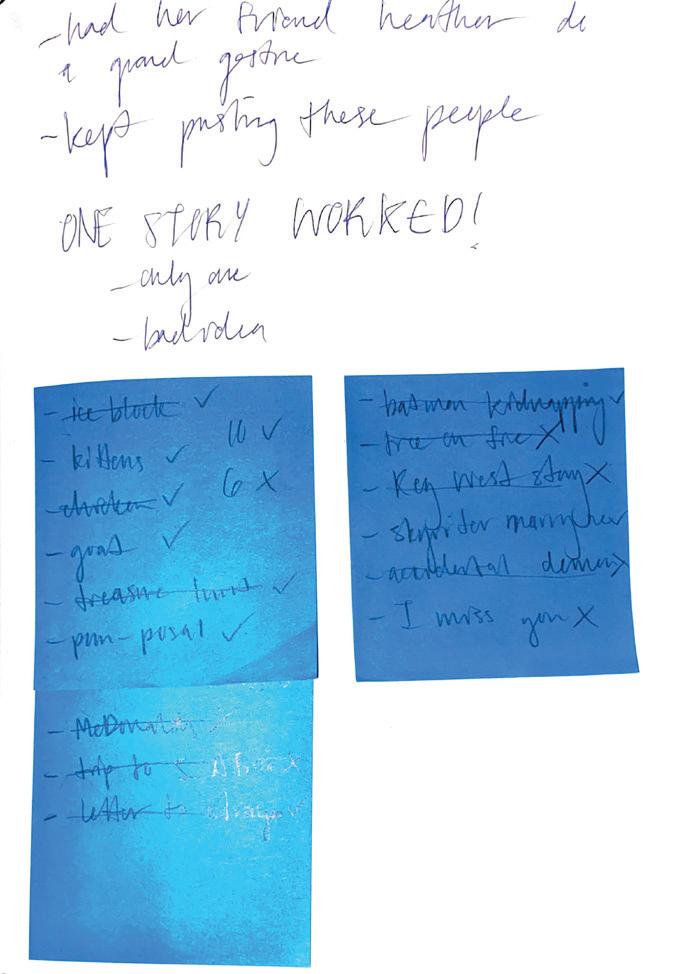 - had her friend heather do
a grand gesture
- kept pushing these people
ONE STORY WORKED!
- only one
- bad idea
- ice block ✓
10 ✓
- kittens ✓
6 X
- chicken ✓
- goat ✓
- treasure hunt ✓
- pun-posal ✓
- McDonalds
- trip to
- letter to
- batman kidnapping ✓
- tree on fire X
- Key West stay X
- skywriter marry her
- accidental
- I miss you X